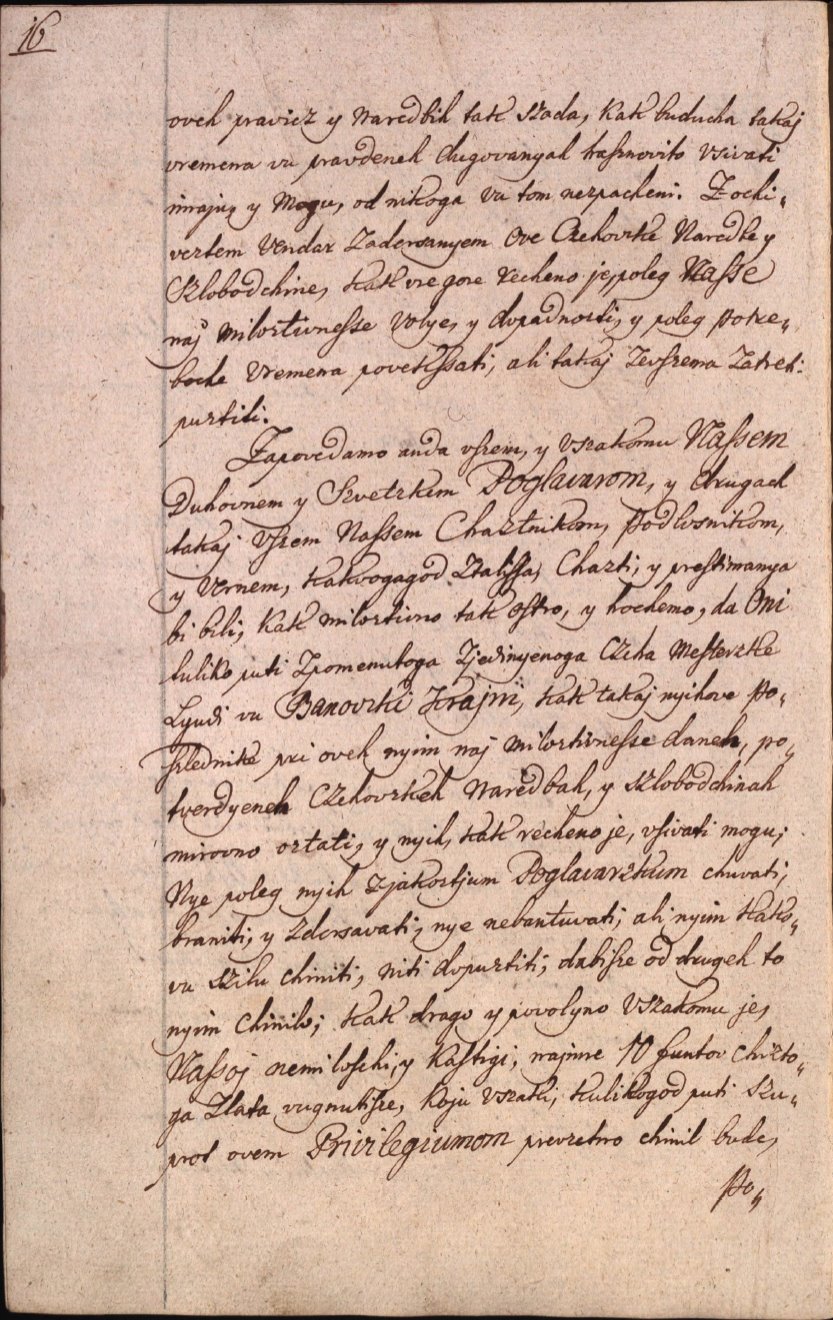 16
oveh pravicz y Naredbih tak szada, kak buducha takaj
vremena vu pravdeneh dugovanyah hasznovito vsivati
imaju, y Mogu, od nikoga vu tom nezpacheni. Z ochi„
veztem Vendar Zadersanyem Ove Czehovzke Naredbe y
Szlobodchine, kak vre gore recheno je, poleg Nasse
naj miloztivnesse Volye, y dopadnozti, y poleg potre„
boche Vremena povekssati, ali takaj Zevszema Zatreti
puztiti.
Zapovedamo anda vszem, y vszakomu Nassem
Duhovnem y Szvetzkem Poglavarom, y drugach
takaj vszem Nassem Chaztnikom, Podlosnikom,
y Vernem, kakvogagod Ztalissa, Chazti, y prestimanya
bi bili, kak miloztivno tak ostro, y hochemo, da Oni
tuliko puti Zpomenutoga Zjedinyenoga Czeha Mesterzke
Lyudi vu Banovzki Krajni, kak takaj nyihove po„
szlednike pri oveh nyim naj miloztivnesse daneh, po„
tverdyeneh Czehovzkeh Naredbah, y szlobodchinah
mirovno oztati, y nyih, kak recheno je, vsivati mogu;
Nye poleg nyih zjakoztjum Poglavarzkum chuvati;
braniti, y zdersavati, nye nebantuvati, ali nyim kako„
vu szilu chiniti, niti dopuztiti, dabisze od drugeh to
nyim chinilo; kak drago y povolyno vszakomu je,
Nassoj nemiloschi, y kastigi, najmre 10 funtov chizto„
ga Zlata vugnutisze, koju vszaki, kulikogod puti szu„
prot ovem Privilegiumom prevzetno chinil bude,
Po„